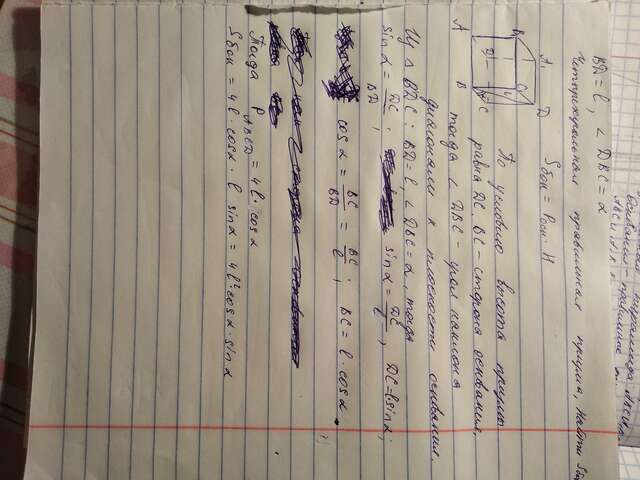 Основания -
BD = l, ∠ DBC = α
Четырехугольная правильная призма, Найти Sбок
Sбок = Pосн · H
A₁ D
B₁ C₁
D₁
A B C
По условию высота призмы
равна DC. BC - сторона основания,
тогда ∠ DBC - угол наклона
диагонали к плоскости основания.
Из Δ BDC: BD = l, ∠ DBC = α, тогда
sin α = DC / BD; sin α = DC / l; DC = l sin α;
cos α = BC / BD = BC / l; BC = l · cos α.
Тогда P ABCD = 4 l · cos α
Sбок = 4 l · cos α · l sin α = 4 l² cos α · sin α